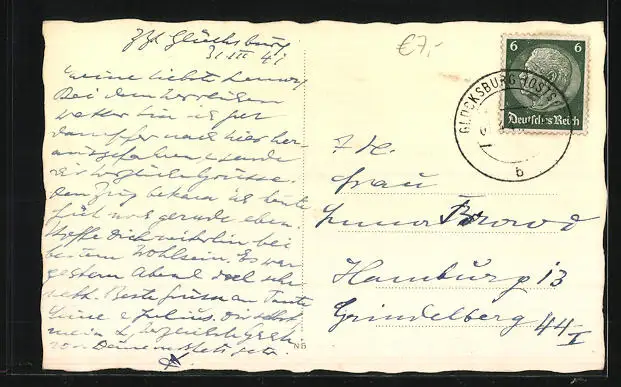 z.Zt. Glücksburg
31. VII. 41
Meine liebste
Bei dem herrlichen
Wetter bin ich per
Dampfer nach hier her
ausgefahren & sende
Dir herzliche Grüsse.
Den Zug bekam ich heute
früh noch gerade eben.
Hoffe Dich weiterhin bei
bestem Wohlsein. Es war
gestern Abend doch sehr
nett. Beste Grüsse an Tante
& Julius. Dir selbst
mein
von Deinem
€7,-
6 6
Deutsches Reich
GLÜCKSBURG (OSTSEE)
b
Frau
Hamburg 13
Grindelberg 44 I
NB